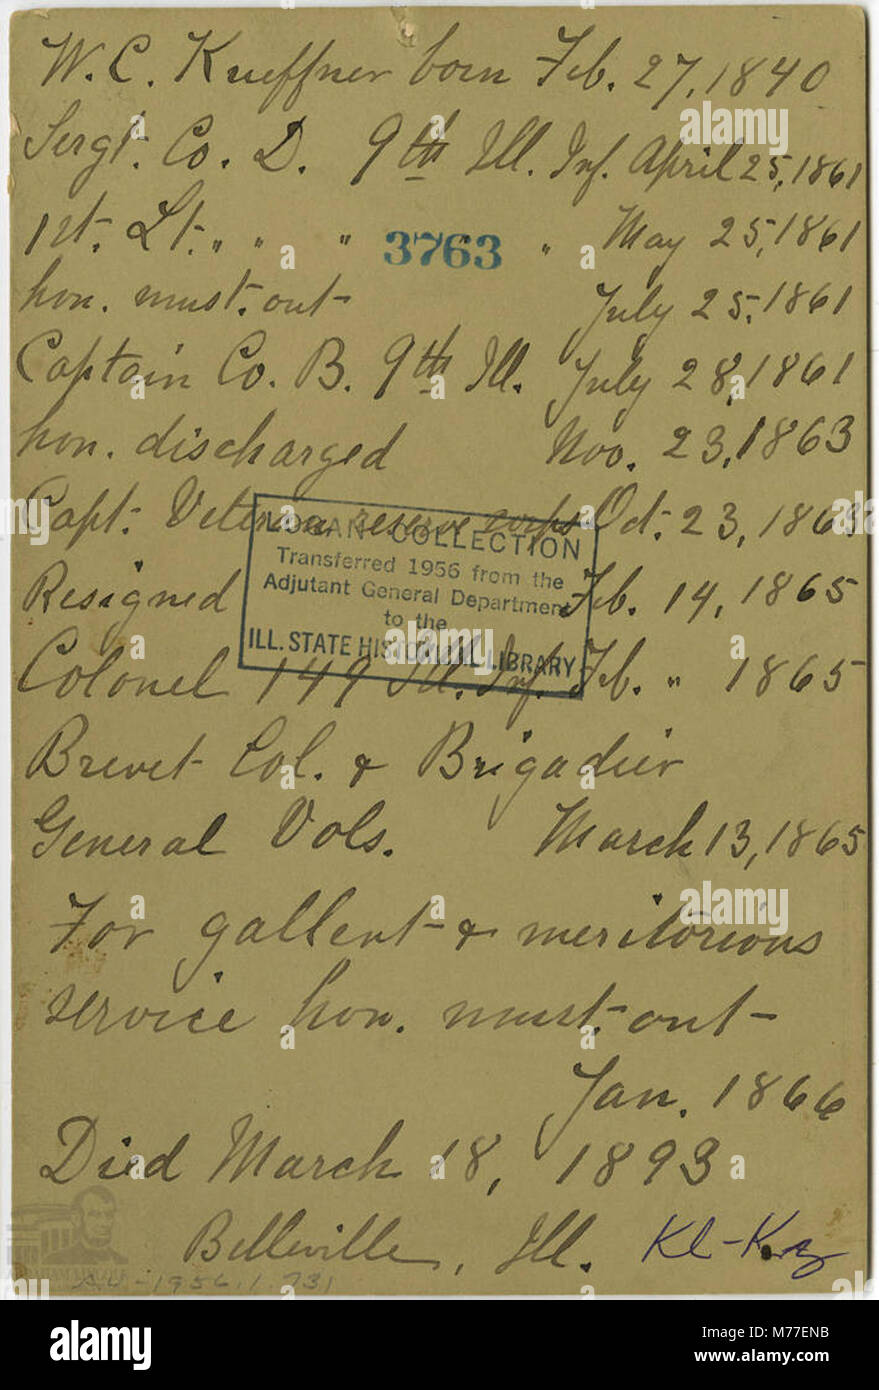 W. C. Kueffner born Feb. 27, 1840
Sergt. Co. D. 9th Ill. Inf. April 25, 1861
1st. Lt. " " " " " May 25, 1861
3763
hon. must. out July 25, 1861
Captain Co. B. 9th Ill. July 28, 1861
hon. discharged Nov. 23, 1863
Capt. Veteran reserve corps Oct. 23, 1863
LOGAN COLLECTION
Transferred 1956 from the
Adjutant General Department
to the
ILL. STATE HISTORICAL LIBRARY
Resigned Feb. 14, 1865
Colonel 149 Ill. Inf. Feb. " 1865
Brevet Col. & Brigadier
General Vols. March 13, 1865
For gallent & meritorious
service hon. must. out
Jan. 1866
Died March 18, 1893
Belleville, Ill. Kl-Kz
AU-1956.1.731
alamy
Image ID: M77ENB
www.alamy.com